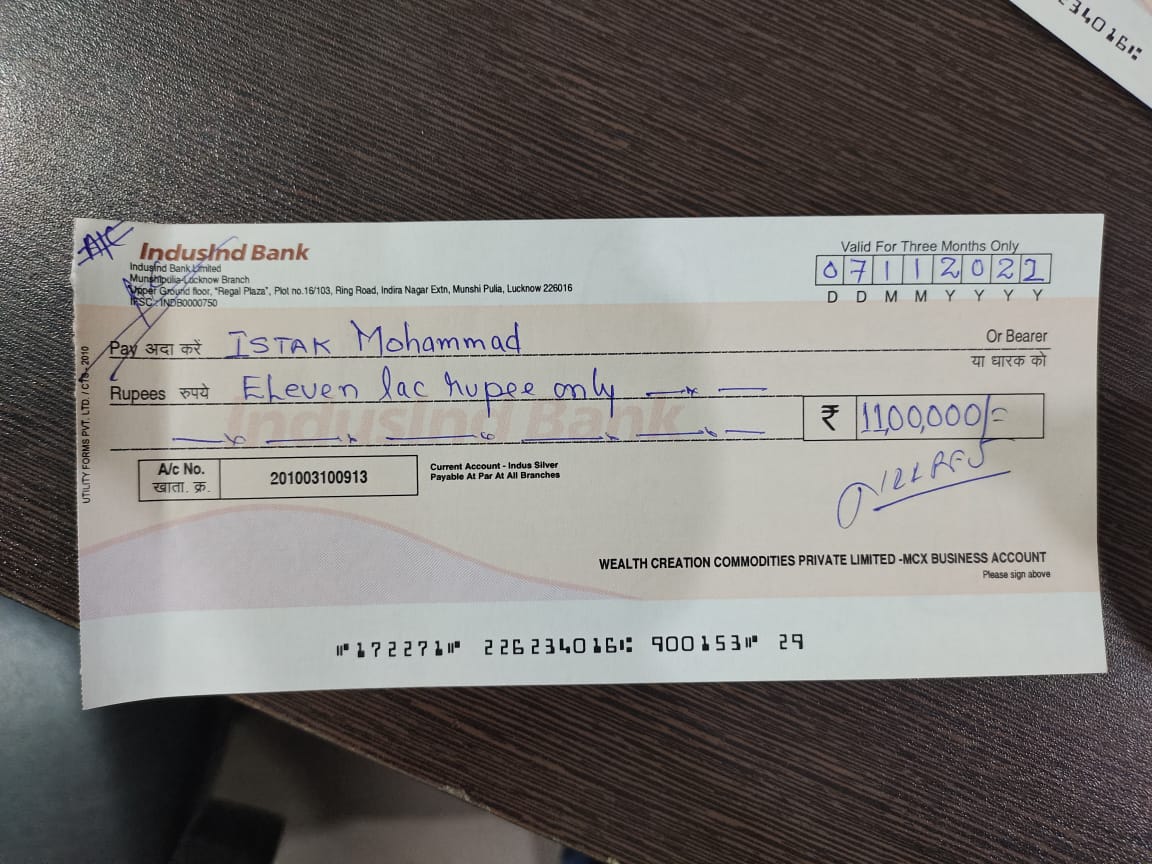 234016⑆
A/C
IndusInd Bank
IndusInd Bank Limited
Munshipulia-Lucknow Branch
Upper Ground floor, "Regal Plaza", Plot no.16/103, Ring Road, Indira Nagar Extn, Munshi Pulia, Lucknow 226016
IFSC : INDB0000750
Valid For Three Months Only
07112022
D D M M Y Y Y Y
Pay अदा करें ISTAK Mohammad Or Bearer
या धारक को
Rupees रुपये ELeven lac rupee only
IndusInd Bank
₹ 11,00,000/=
A/c No.
खाता. क्र.
201003100913
Current Account - Indus Silver
Payable At Par At All Branches
WEALTH CREATION COMMODITIES PRIVATE LIMITED -MCX BUSINESS ACCOUNT
Please sign above
⑈172271⑈ 226234016⑆ 900153⑈ 29
UTILITY FORMS PVT. LTD. / CTS-2010